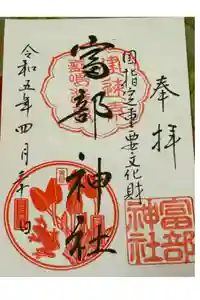 奉拝
国指定重要文化財
富部神社
令和五年四月三十日
富部
神社